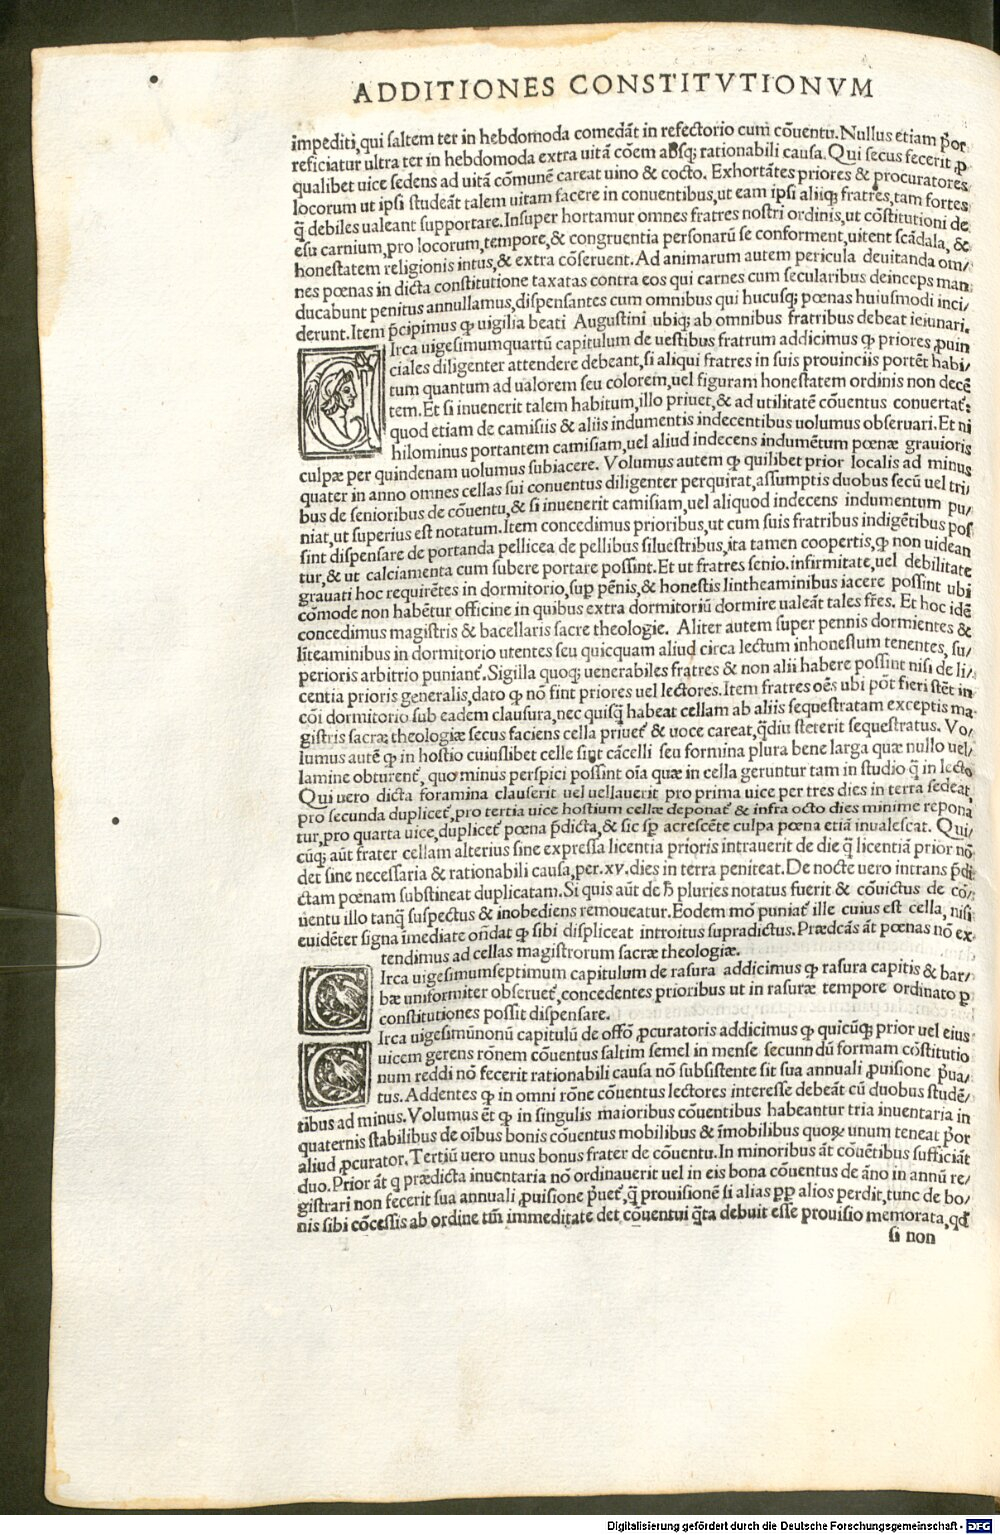 ADDITIONES CONSTITVTIONVM
impediti,qui saltem ter in hebdomoda comedāt in refectorio cum cōuentu.Nullus etiam p̄or
reficiatur ultra ter in hebdomoda extra uitā cōem absq; rationabili causa.Qui secus fecerit ꝓ
qualibet uice sedens ad uitā cōmunē careat uino & cocto. Exhortātes priores & procuratores
locorum ut ipsi studeāt talem uitam facere in conuentibus,ut eam ipsi aliiq; fratres,tam fortes
q̄ debiles ualeant supportare.Insuper hortamur omnes fratres nostri ordinis,ut cōstitutioni de
esu carnium,pro locorum,tempore,& congruentia personarū se conforment,uitent scādala, &
honestatem religionis intus,& extra cōseruent.Ad animarum autem pericula deuitanda om/
nes pœnas in dicta constitutione taxatas contra eos qui carnes cum secularibus deinceps man
ducabunt penitus annullamus,dispensantes cum omnibus qui hucusq; pœnas huiusmodi inci/
derunt.Item p̄cipimus ꝙ uigilia beati Augustini ubiq; ab omnibus fratribus debeat ieiunari.
CIrca uigesimumquartū capitulum de uestibus fratrum addicimus ꝙ priores ꝓuin
ciales diligenter attendere debeant,si aliqui fratres in suis prouinciis portēt habi/
tum quantum ad ualorem seu colorem,uel figuram honestatem ordinis non decē
tem.Et si inuenerit talem habitum,illo priuet,& ad utilitatē cōuentus conuertat̄:
quod etiam de camisiis & aliis indumentis indecentibus uolumus obseruari.Et ni
hilominus portantem camisiam,uel aliud indecens indumētum pœnæ grauioris
culpæ per quindenam uolumus subiacere. Volumus autem ꝙ quilibet prior localis ad minus
quater in anno omnes cellas sui conuentus diligenter perquirat,assumptis duobus secū uel tri/
bus de senioribus de cōuentu,& si inuenerit camisiam,uel aliquod indecens indumentum pu/
niat,ut superius est notatum.Item concedimus prioribus,ut cum suis fratribus indigētibus pos
sint dispensare de portanda pellicea de pellibus siluestribus,ita tamen coopertis,ꝙ non uidean
tur,& ut calciamenta cum subere portare possint.Et ut fratres senio.infirmitate,uel debilitate
grauati hoc requirētes in dormitorio,suꝑ pēnis,& honestis lintheaminibus iacere possint ubi
cōmode non habētur officine in quibus extra dormitoriū dormire ualeāt tales fr̄es. Et hoc idē
concedimus magistris & bacellaris sacre theologie. Aliter autem super pennis dormientes &
līteaminibus in dormitorio utentes seu quicquam aliud circa lectum inhonestum tenentes, su/
perioris arbitrio puniant̄.Sigilla quoq; uenerabiles fratres & non alii habere possint nisi de li/
centia prioris generalis,dato ꝙ nō sint priores uel lectores.Item fratres oēs ubi pōt fieri stēt in
cōi dormitorio sub eadem clausura,nec quisq̄ habeat cellam ab aliis sequestratam exceptis ma
gistris sacræ theologiæ secus faciens cella priuet̄ & uoce careat,q̄diu steterit sequestratus. Vo/
lumus autē ꝙ in hostio cuiuslibet celle sint cācelli seu formina plura bene larga quæ nullo uel/
lamine obturent̄, quo minus perspici possint oīa quæ in cella geruntur tam in studio q̄ in lecto
Qui uero dicta foramina clauserit uel uellauerit pro prima uice per tres dies in terra sedeat,
pro secunda duplicet̄,pro tertia uice hostium cellæ deponat̄ & infra octo dies minime repona
tur,pro quarta uice,duplicet̄ pœna p̄dicta,& sic sꝑ acrescēte culpa pœna etiā inualescat. Qui/
cūq; aūt frater cellam alterius sine expressa licentia prioris intrauerit de die q̄ licentiā prior nō
det sine necessaria & rationabili causa,per.xv.dies in terra peniteat.De nocte uero intrans p̄di
ctam pœnam substineat duplicatam.Si quis aūt de h̄ pluries notatus fuerit & cōuictus de cō/
uentu illo tanq̄ suspectus & inobediens remoueatur.Eodem mō puniat̄ ille cuius est cella, nisi
euidēter signa īmediate ōndat ꝙ sibi displiceat introitus supradictus.Prædcās āt pœnas nō ex
tendimus ad cellas magistrorum sacræ theologiæ.
CIrca uigesimumseptimum capitulum de rasura addicimus ꝙ rasura capitis & bar/
bæ uniformiter obseruet̄,concedentes prioribus ut in rasuræ tempore ordinato ꝑ
constitutiones possit dispensare.
CIrca uigesimūnonū capitulū de offō ꝓcuratoris addicimus ꝙ quicūq; prior uel eius
uicem gerens rōnem cōuentus saltim semel in mense secunndū formam cōstitutio
num reddi nō fecerit rationabili causa nō subsistente sit sua annuali ꝓuisione p̄ua/
tus.Addentes ꝙ in omni rōne cōuentus lectores interesse debeāt cū duobus studē/
tibus ad minus.Volumus ēt ꝙ in singulis maioribus cōuentibus habeantur tria inuentaria in
quaternis stabilibus de oībus bonis cōuentus mobilibus & īmobilibus quoꝝ unum teneat p̄or
aliud ꝓcurator.Tertiū uero unus bonus frater de cōuentu.In minoribus āt cōuētibus sufficiāt
duo.Prior āt q prædicta inuentaria nō ordinauerit uel in eis bona cōuentus de āno in annū re/
gistrari non fecerit sua annuali ꝓuisione p̄uet̄,q̄ prouisionē si alias ꝑꝑ alios perdit,tunc de bo/
nis sibi cōcessis ab ordine tm̄ immeditate det cōuentui q̄ta debuit esse prouisio memorata,qd̄
si non
Digitalisierung gefördert durch die Deutsche Forschungsgemeinschaft - DFG